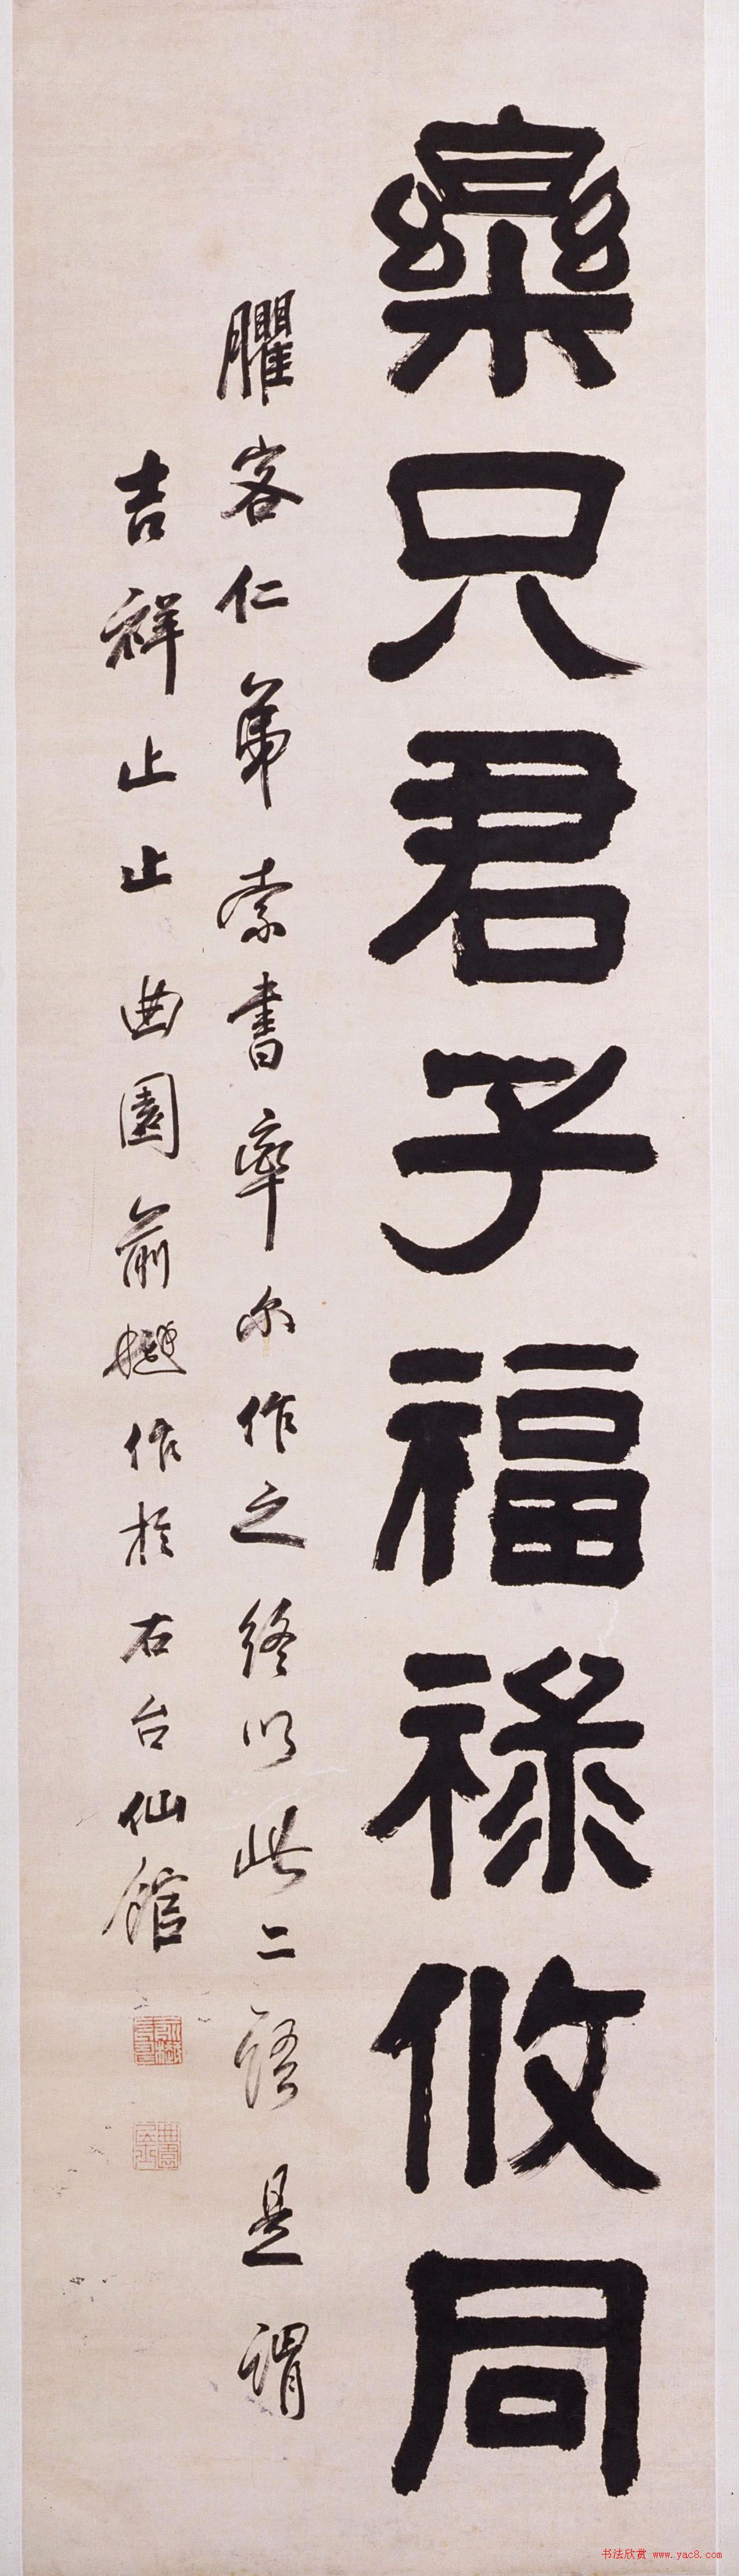 樂只君子福祿攸同
臞客仁弟索書率尔作之終以此二語是謂
吉祥止止曲園俞樾作於右台仙館
曲園居士
书法欣赏 www.yac8.com